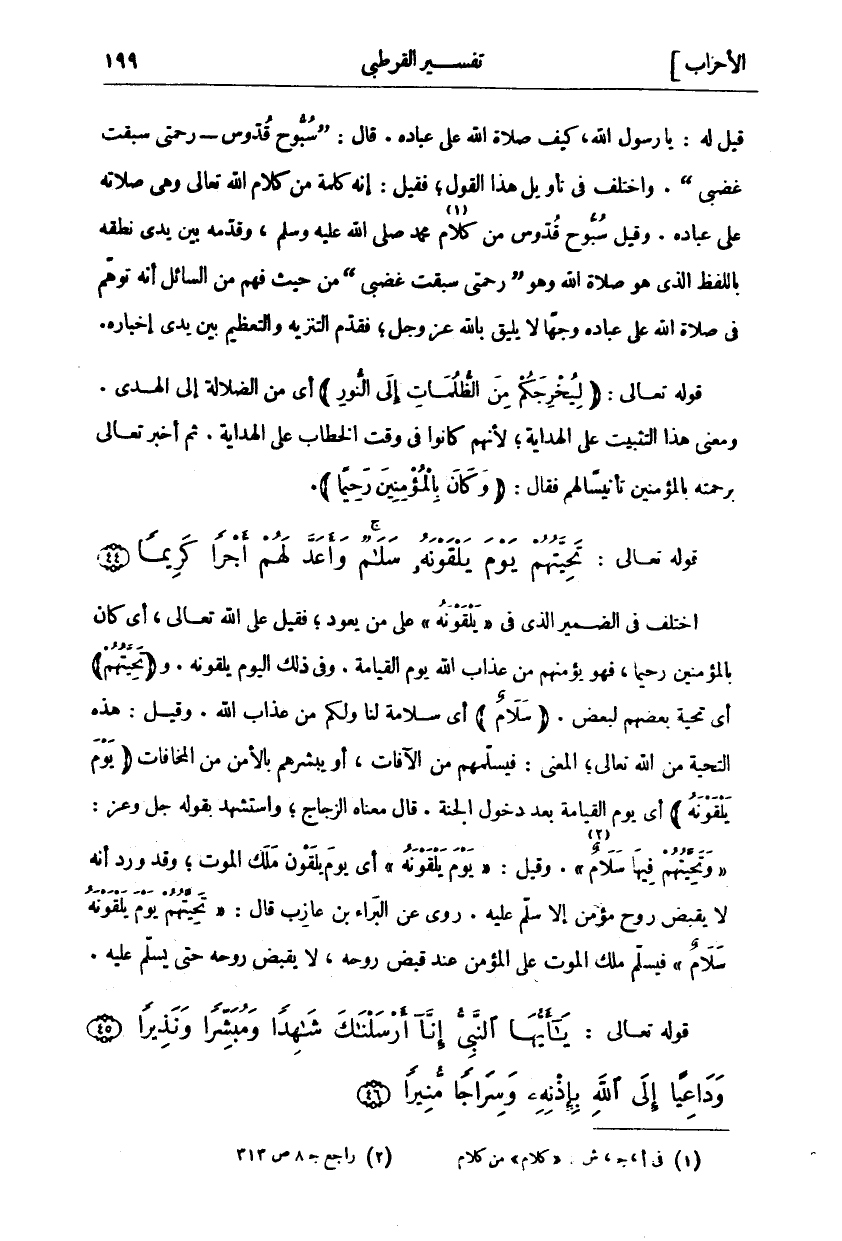 الأحزاب] تفسير القرطبى ١٩٩
قيل له : يا رسول الله، كيف صلاة الله على عباده . قال : "سُبُّوح قُدّوس ــ رحمتى سبقت
غضبى" . واختلف فى تأويل هذا القول؛ فقيل : إنه كلمة من كلام الله تعالى وهى صلاته
على عباده . وقيل سُبُّوح قُدّوس من كلام (١) محمد صلى الله عليه وسلم ، وقدّمه بين يدى نطقه
باللفظ الذى هو صلاة الله وهو "رحمتى سبقت غضبى" من حيث فهم من السائل أنه توهّم
فى صلاة الله على عباده وجهًا لا يليق بالله عز وجل؛ فقدّم التنزيه والتعظيم بين يدى إخباره.
قوله تعالى : ( لِيُخْرِجَكُمْ مِنَ الظُّلُمَاتِ إِلَى النُّورِ ) أى من الضلالة إلى الهدى .
ومعنى هذا التثبيت على الهداية ؛ لأنهم كانوا فى وقت الخطاب على الهداية . ثم أخبر تعالى
برحمته بالمؤمنين تأنيسًا لهم فقال : ( وَكَانَ بِالْمُؤْمِنِينَ رَحِيمًا ).
قوله تعالى : تَحِيَّتُهُمْ يَوْمَ يَلْقَوْنَهُۥ سَلَٰمٌ ۚ وَأَعَدَّ لَهُمْ أَجْرًا كَرِيمًا ٤٤
اختلف فى الضمير الذى فى « يَلْقَوْنَهُ » على من يعود ؛ فقيل على الله تعالى ، أى كان
بالمؤمنين رحيما ، فهو يؤمنهم من عذاب الله يوم القيامة . وفى ذلك اليوم يلقونه . و(تَحِيَّتُهُمْ)
أى تحية بعضهم لبعض . ( سَلَامٌ ) أى سلامة لنا ولكم من عذاب الله . وقيل : هذه
التحية من الله تعالى؛ المعنى : فيسلّمهم من الآفات ، أو يبشرهم بالأمن من المخافات ( يَوْمَ
يَلْقَوْنَهُ ) أى يوم القيامة بعد دخول الجنة . قال معناه الزجاج ؛ واستشهد بقوله جل وعز :
« وَتَحِيَّتُهُمْ فِيهَا سَلَامٌ (٢) » . وقيل : « يَوْمَ يَلْقَوْنَهُ » أى يوم يلقون مَلَك الموت ؛ وقد ورد أنه
لا يقبض روح مؤمن إلا سلّم عليه . روى عن البَراء بن عازب قال : « تَحِيَّتُهُمْ يَوْمَ يَلْقَوْنَهُ
سَلَامٌ » فيسلّم ملك الموت على المؤمن عند قبض روحه ، لا يقبض روحه حتى يسلّم عليه .
قوله تعالى : يَٰٓأَيُّهَا ٱلنَّبِىُّ إِنَّآ أَرْسَلْنَٰكَ شَٰهِدًا وَمُبَشِّرًا وَنَذِيرًا ٤٥
وَدَاعِيًا إِلَى ٱللَّهِ بِإِذْنِهِۦ وَسِرَاجًا مُّنِيرًا ٤٦
(١) فى أ ، جـ ، ش . «كلام» من كلام (٢) راجع جـ ٨ ص ٣١٣